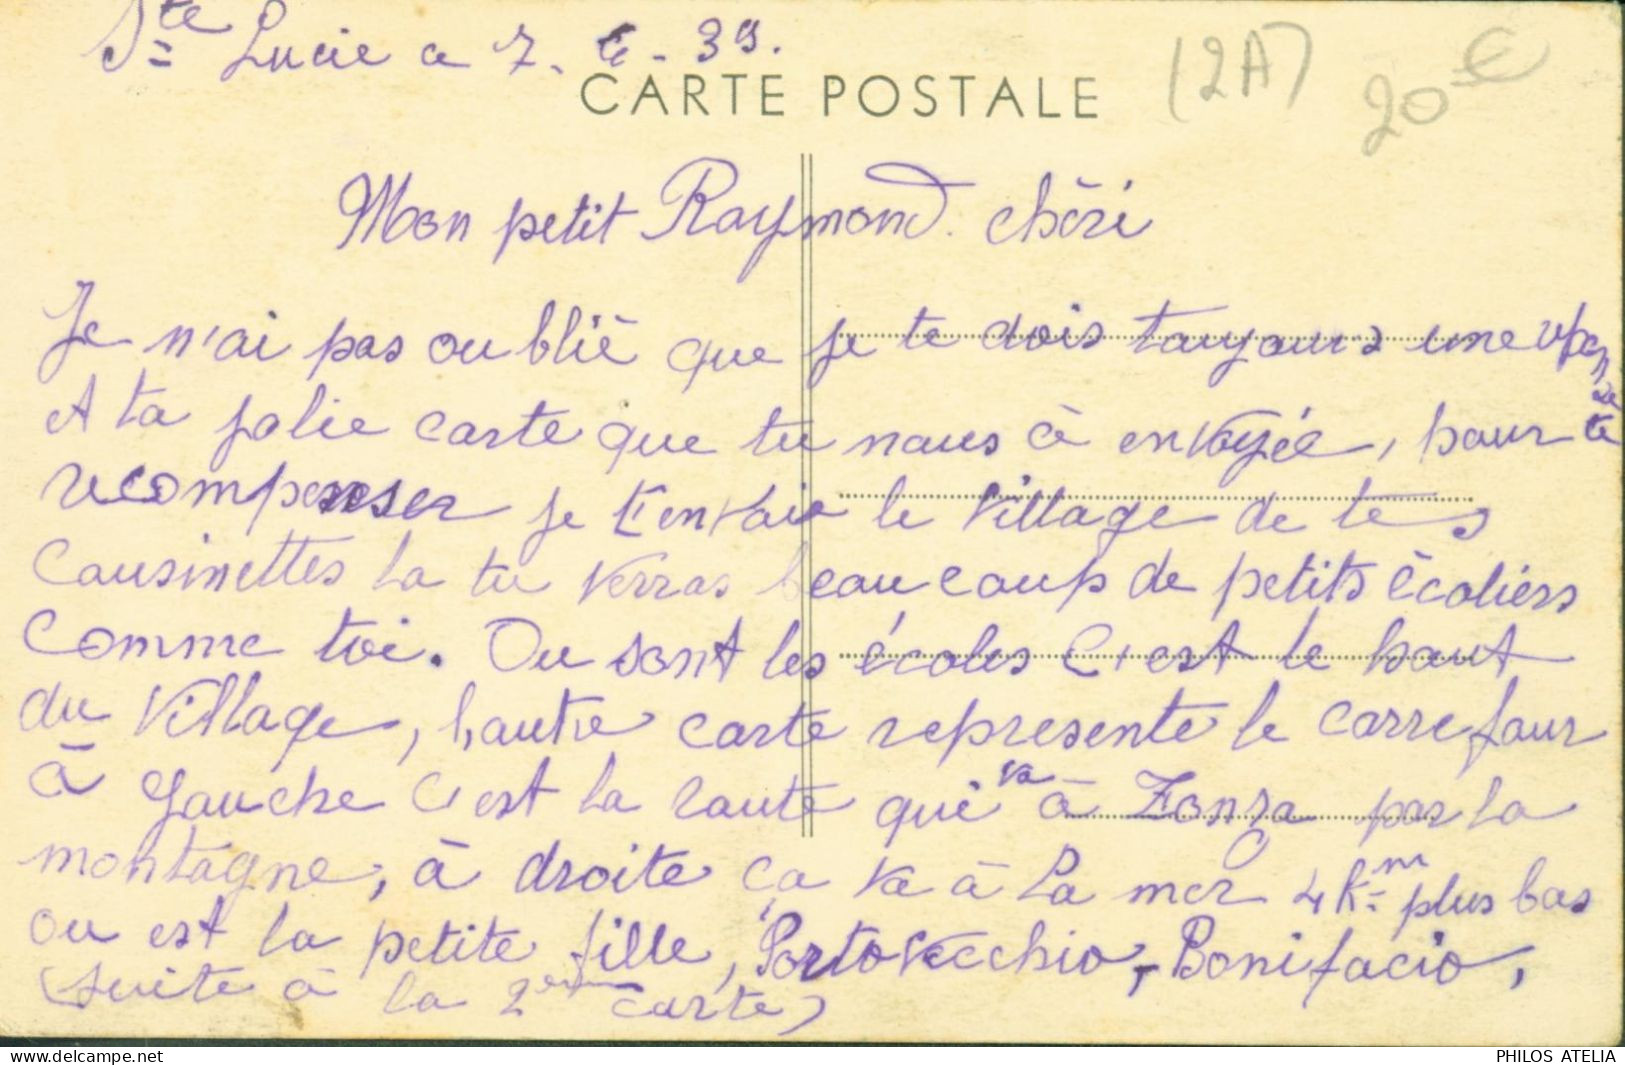 Ste Lucie ce 7. 6 - 39.
CARTE POSTALE
(2A)
20 €
Mon petit Raymond. chéri
Je n'ai pas oublié que je te dois toujours une rèpense
A ta jolie carte que tu nous à envoyée, pour te
recompenser je t'envoie le village de tes
cousinettes la tu verras beaucoup de petits écoliers
comme toi. Ou sont les écoles c'est le haut
du village, l'autre carte represente le carrefour
à gauche c'est la route qui va à Zonza par la
montagne, à droite ça va à la mer 4 Km plus bas
ou est la petite fille, Porto Vecchio, - Bonifacio,
(suite à la 2em carte)
www.delcampe.net
PHILOS ATELIA